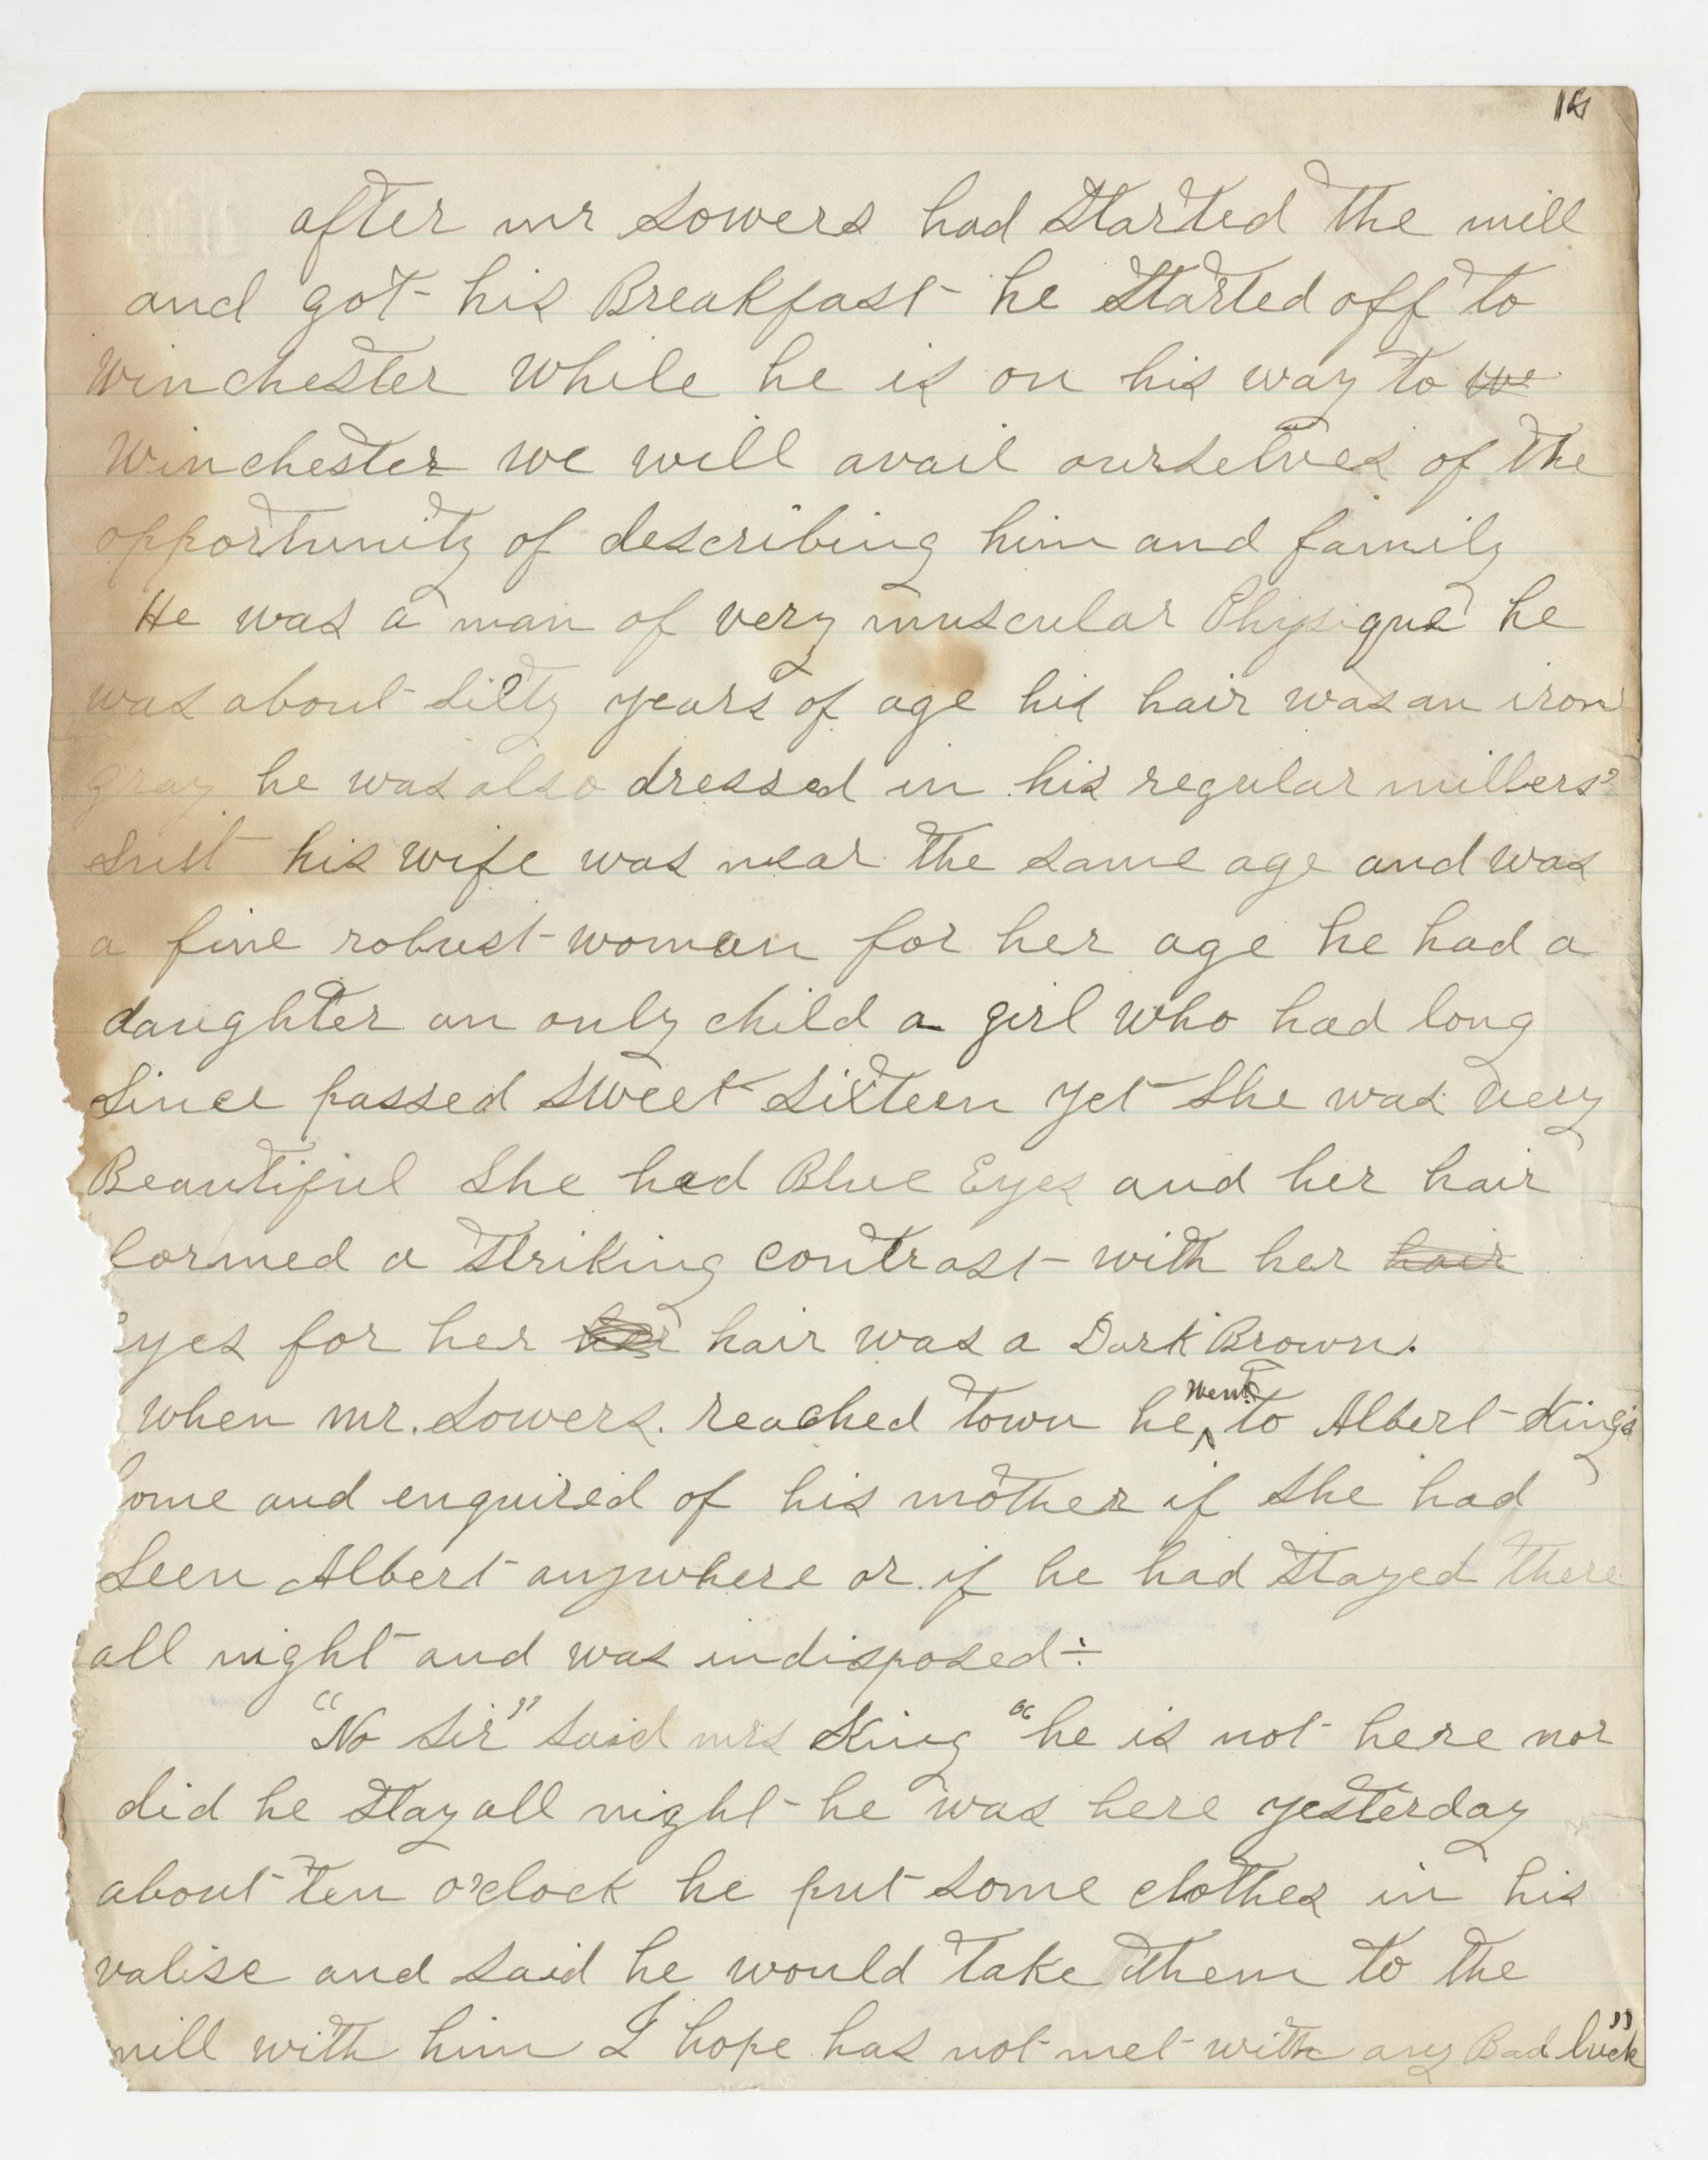 12
after mr Sowers had started the mill
and got his Breakfast he started off to
Winchester while he is on his way to we
Winchester we will avail ourselves of the
opportunity of describing him and family
He was a man of very muscular Physique he
was about sixty years of age his hair was an iron
gray he was also dressed in his regular millers'
suit his wife was near the same age and was
a fine robust woman for her age he had a
daughter an only child a girl who had long
since passed sweet sixteen yet she was very
Beautiful she had Blue Eyes and her hair
formed a striking contrast with her hair
Eyes for her her hair was a Dark Brown.
when mr. Sowers. reached town he went to Albert King's
home and enquired of his mother if she had
seen Albert anywhere or if he had stayed there
all night and was indisposed÷
"No sir" said mrs King "he is not here nor
did he stay all night he was here yesterday
about ten o'clock he put some clothes in his
valise and said he would take them to the
mill with him I hope has not met with any Bad luck"